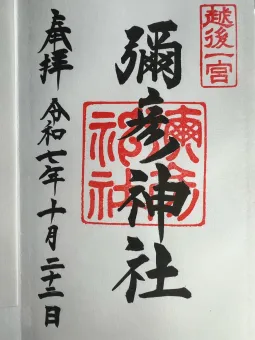 越後一宮
彌彦神社
彌彦神社
奉拝 令和七年十月二十二日